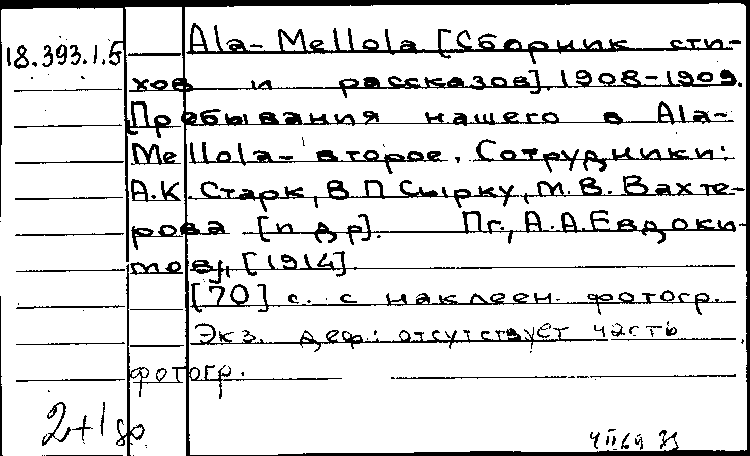 18.393.1.5
Ala-Mellola [Сборник сти-
хов и рассказов]. 1908-1909.
[Пребывания нашего в Ala-
Mellola- второе. Сотрудники:
А.К. Старк, В П Сырку, М. В. Вахте-
рова [и др]. Пг., А.А.Евдоки-
мов], [1914].
[70] с. с наклеен. фотогр.
Экз. деф.: отсутствует часть
фотогр.
2+1 80
4 II 69